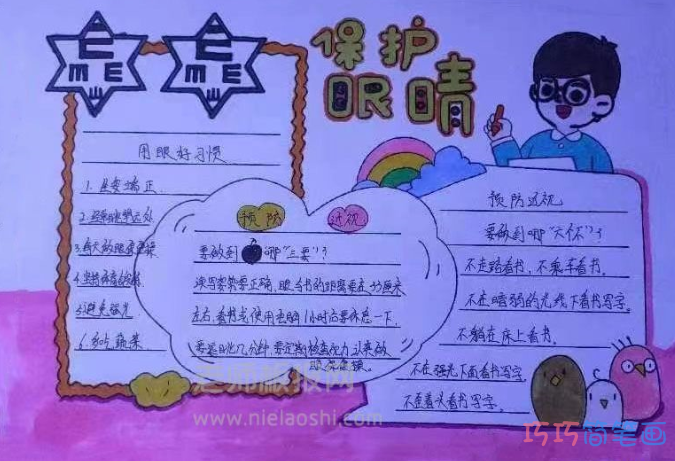 保护
眼睛
E
E
m E
m E
用眼好习惯
1. 坐要端正
2. 经常眺望远处
3. 每天做眼保健操
6. 多吃蔬菜
预防
近视
要做到哪“三要”?
读写姿势要正确,眼与书的距离要在
左右.看书或使用电脑1小时后要休息一下.
要定期检查视力,认真做
眼保健操.
预防近视
要做到哪“六不”?
不走路看书,不乘车看书.
不在暗弱的光线下看书写字.
不躺在床上看书.
不在强光下看书写字.
不歪着头看书写字.
老师板报网
www.nielaoshi.com
巧巧简笔画